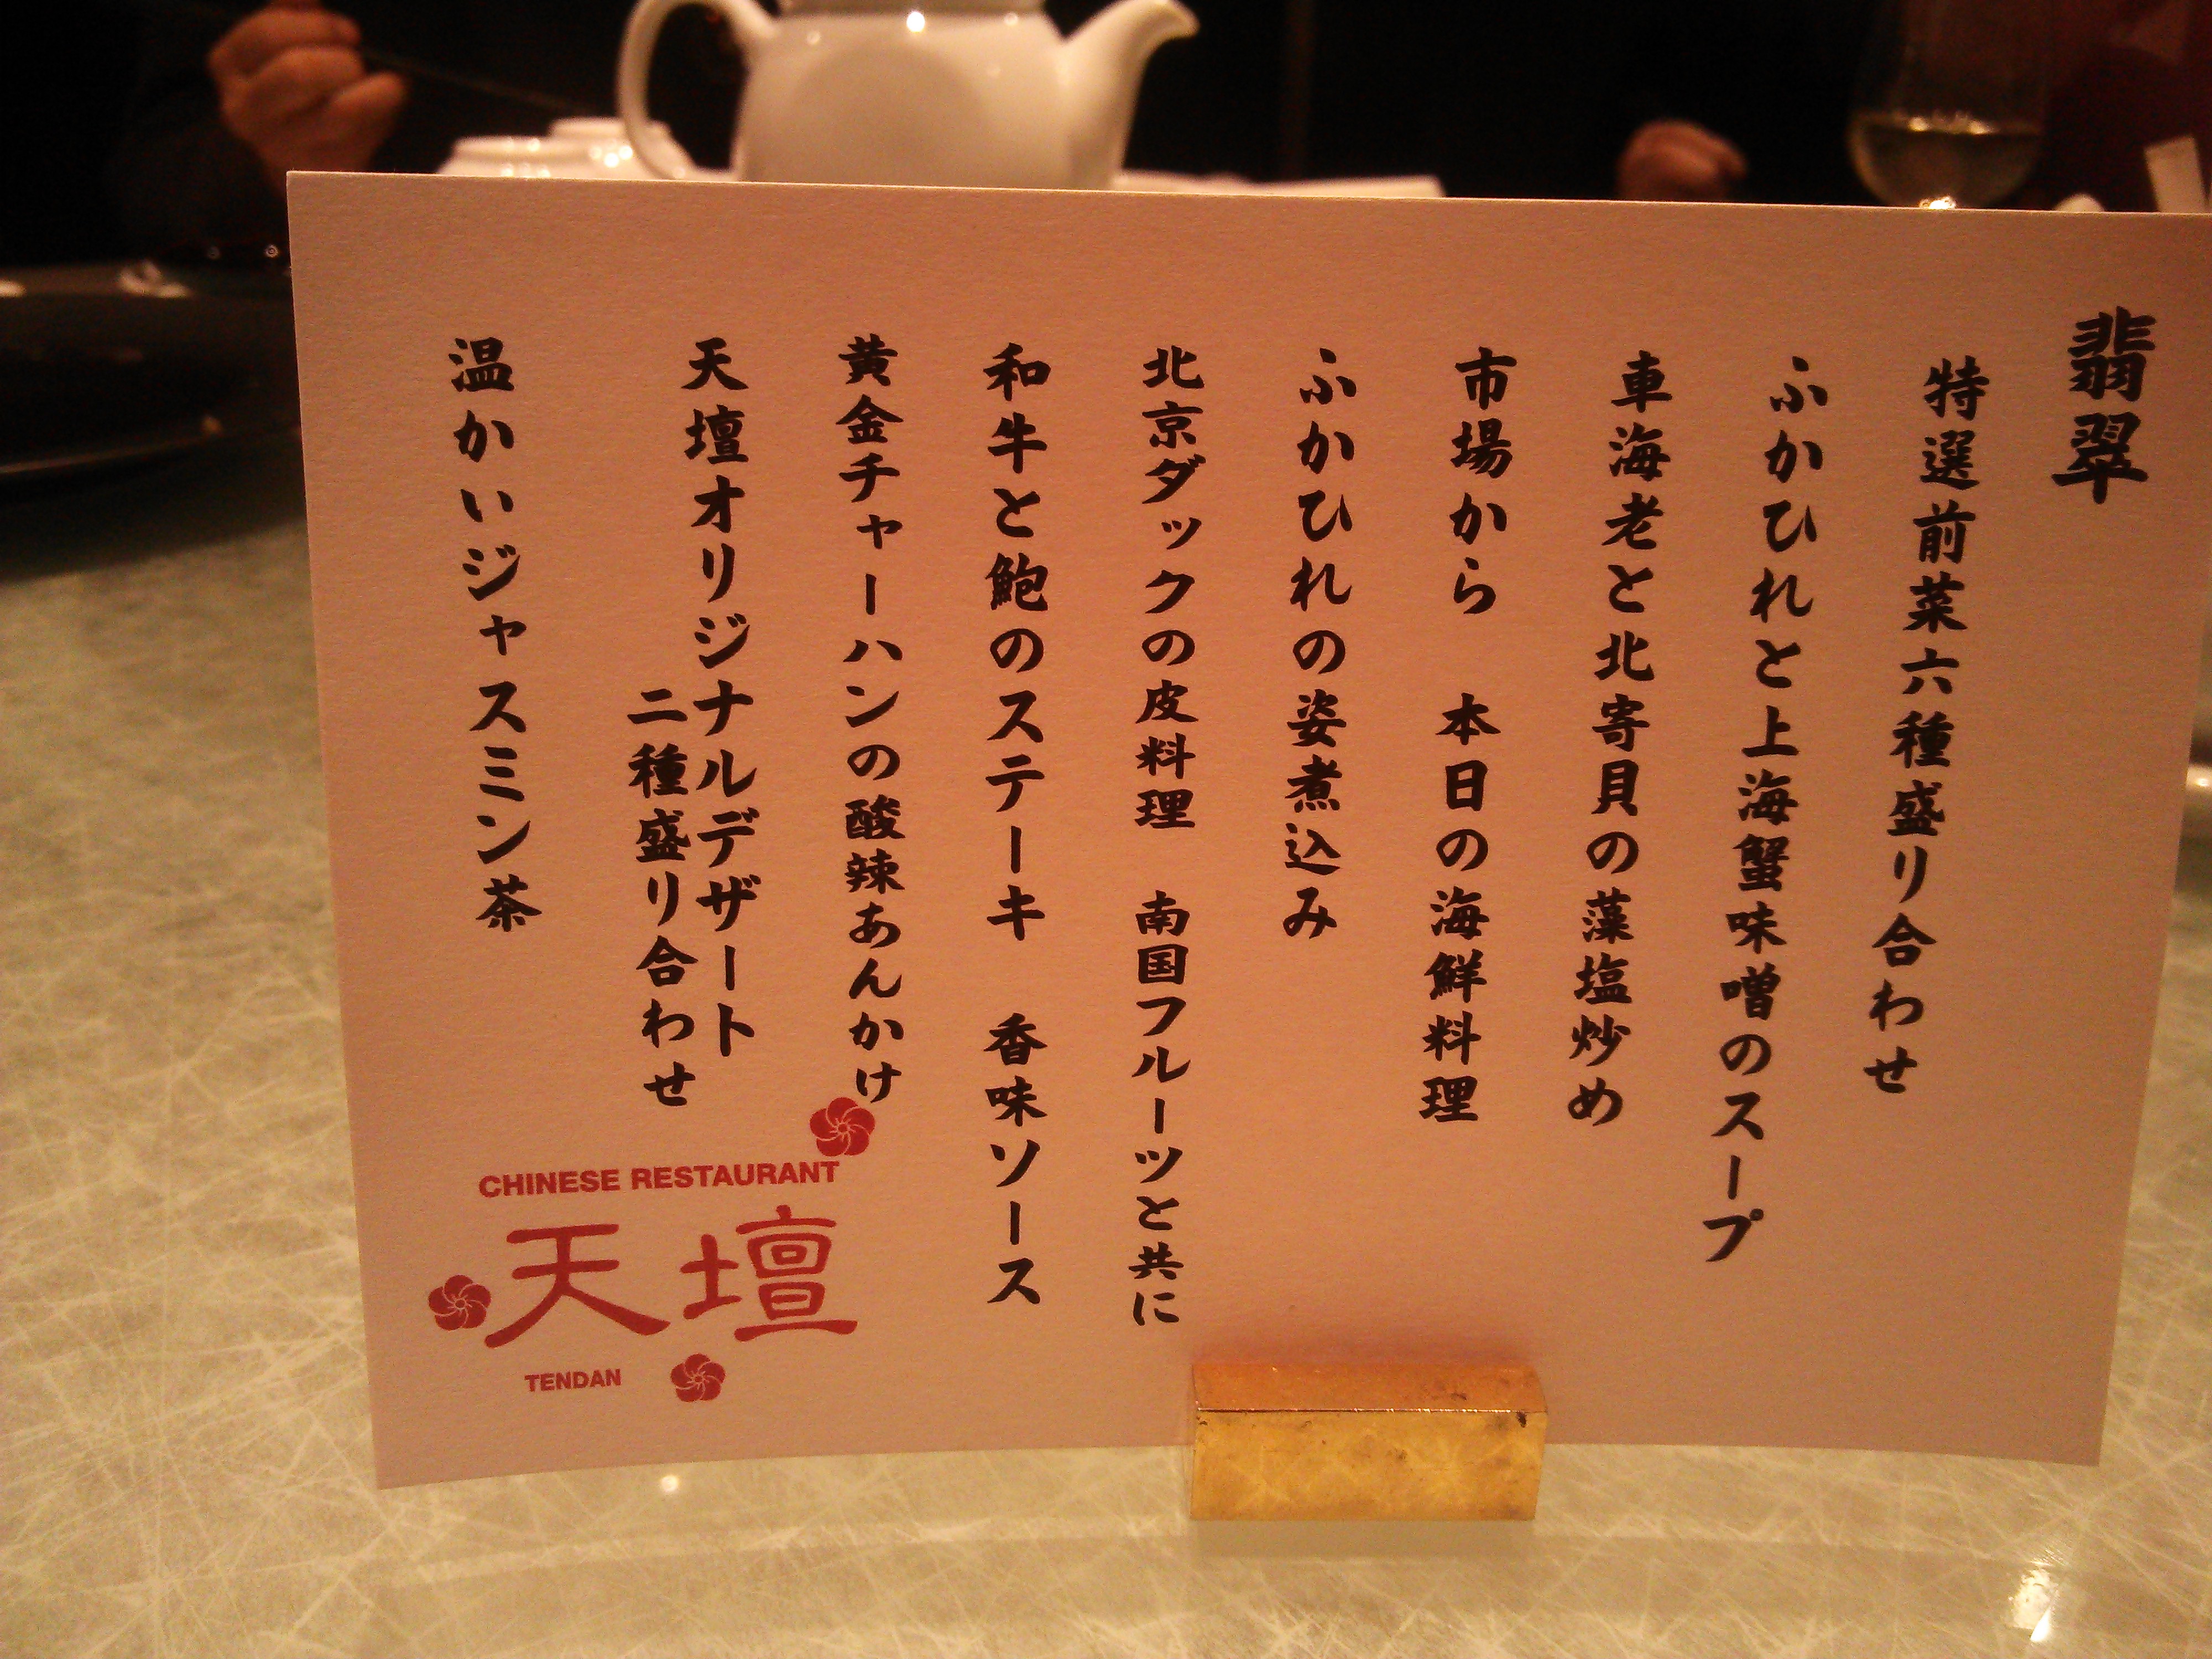 翡翠
特選前菜六種盛り合わせ
ふかひれと上海蟹味噌のスープ
車海老と北寄貝の藻塩炒め
市場から　本日の海鮮料理
ふかひれの姿煮込み
北京ダックの皮料理　南国フルーツと共に
和牛と鮑のステーキ　香味ソース
黄金チャーハンの酸辣あんかけ
天壇オリジナルデザート
二種盛り合わせ
温かいジャスミン茶
CHINESE RESTAURANT
天壇
TENDAN